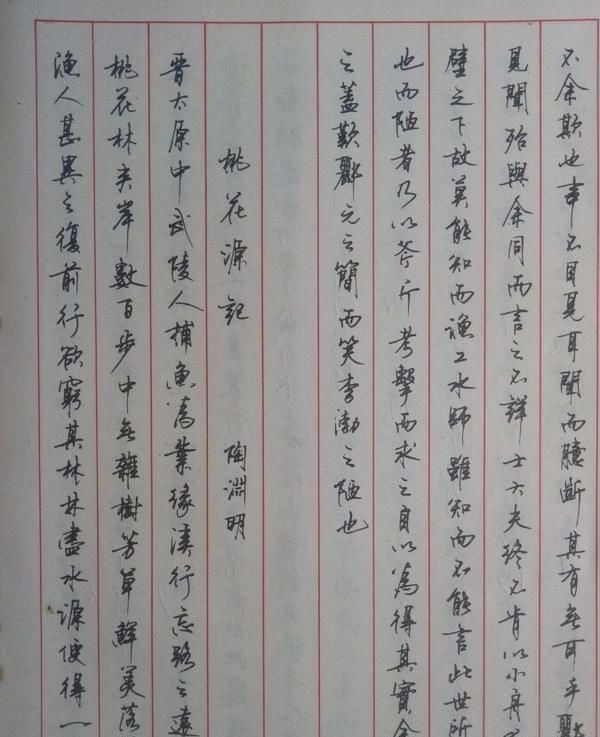 不余欺也事不目見耳聞而臆斷其有無可乎酈
見聞殆與余同而言之不詳士大夫終不肯以小舟
壁之下故莫能知而漁工水師雖知而不能言此世所
也而陋者乃以斧斤考擊而求之自以為得其實余
之蓋歎酈元之簡而笑李渤之陋也
桃花源記 陶淵明
晋太原中武陵人捕魚為業緣溪行忘路之遠
桃花林夹岸數百步中無雜樹芳草鮮美落
漁人甚異之復前行欲窮其林林盡水源便得一